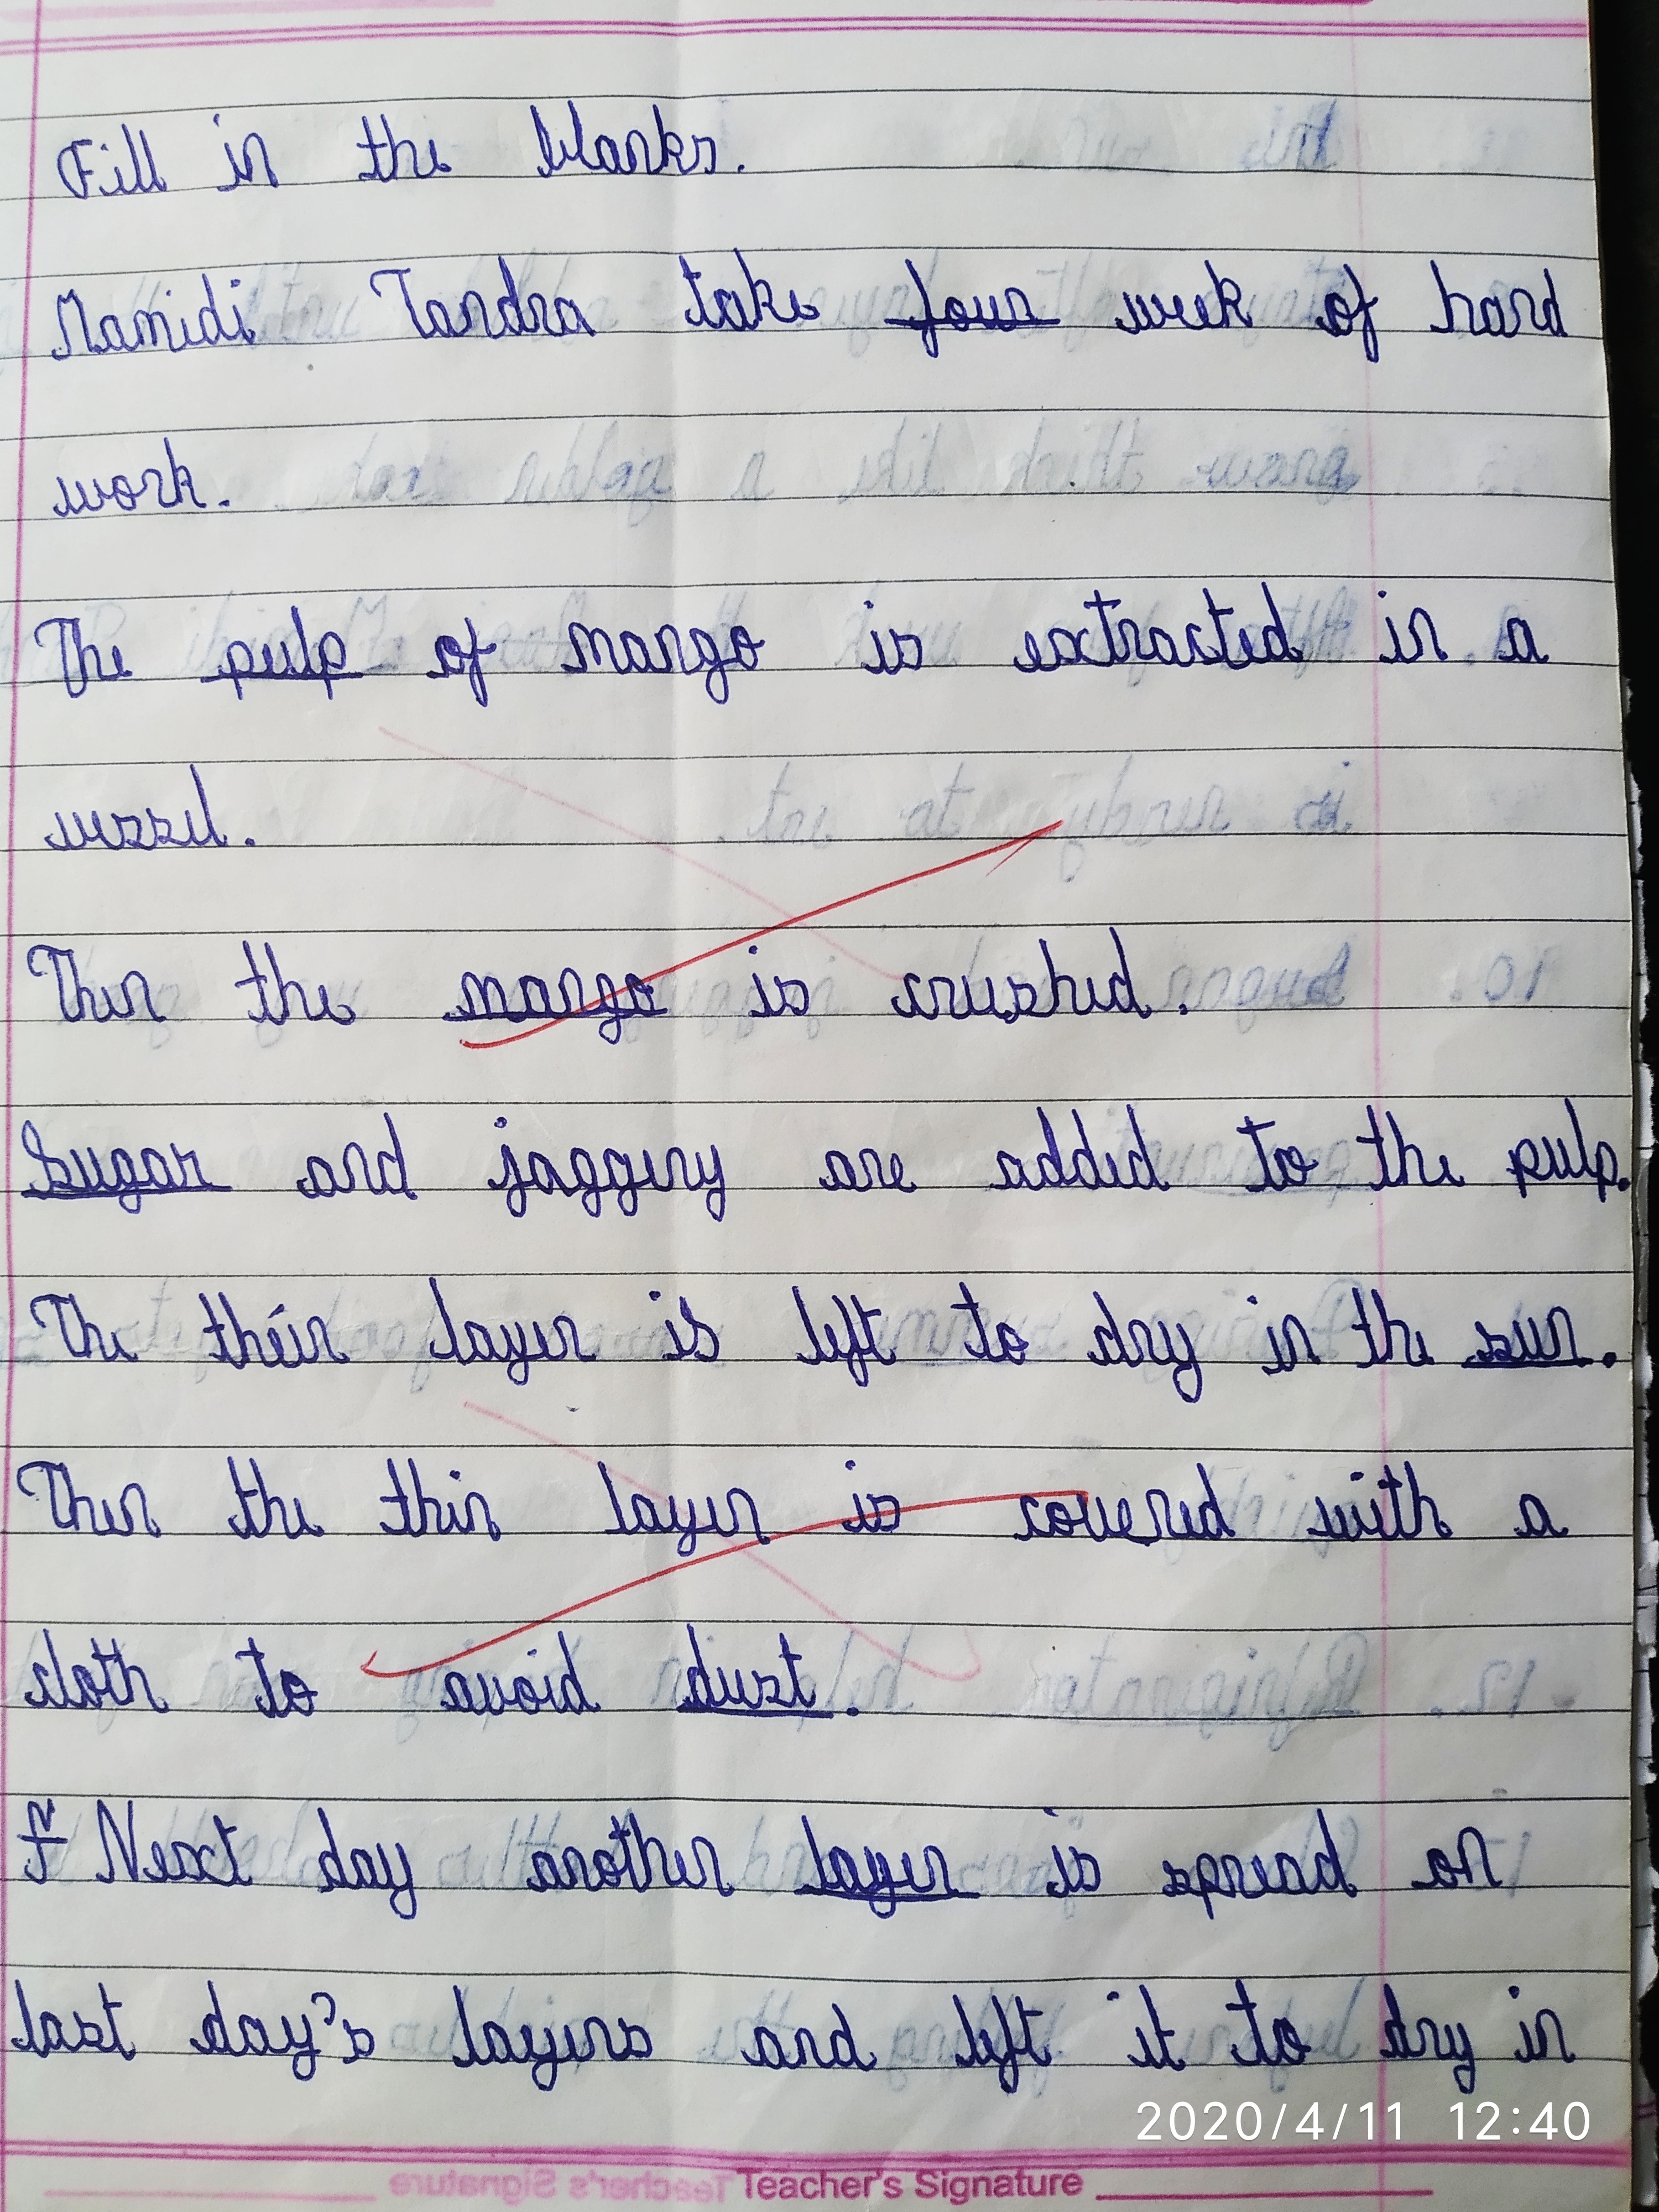 Fill in the blanks.
Mamidi Tandra take four week of hard
work.
The pulp of mango is extracted in a
vessel.
Then the mango is crushed.
Sugar and jaggery are added to the pulp.
The thein layer is left to dry in the sun.
Then the thin layer is covered with a
cloth to avoid dust.
Next day another layer is spread on
last day's layers and left it to dry in
2020/4/11 12:40
Teacher's Signature